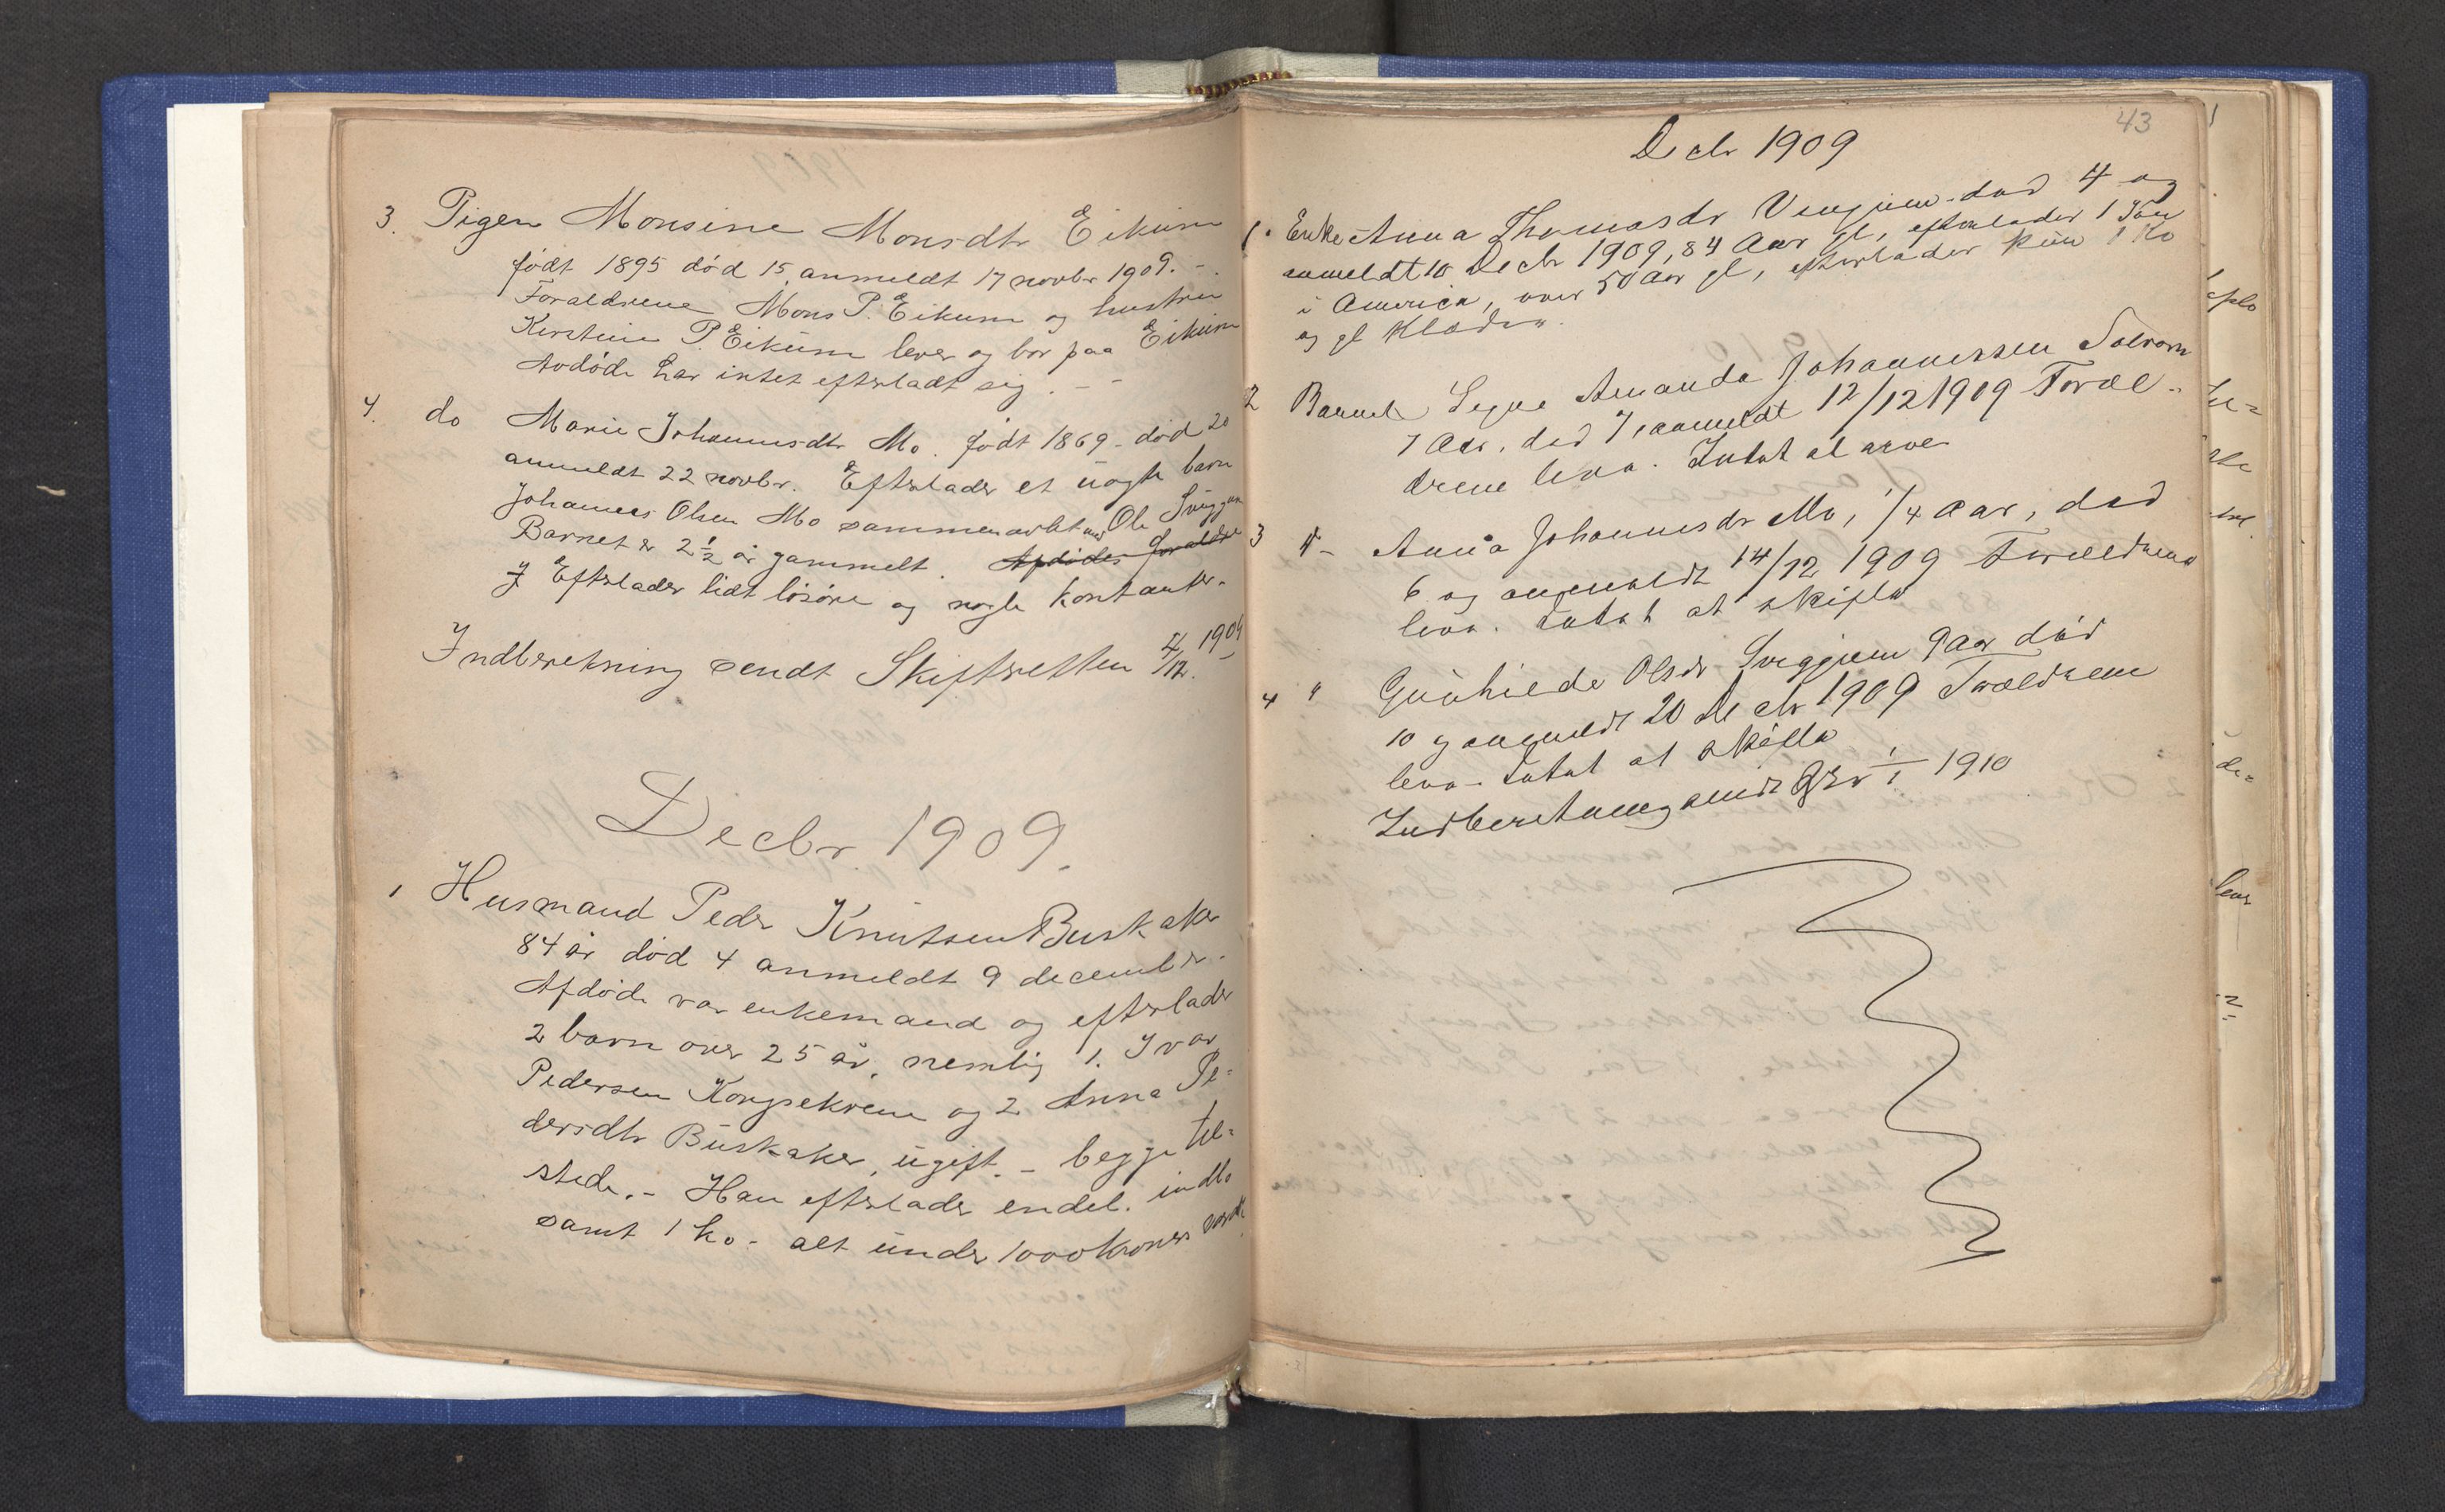 3. Pigen Monsine Monsdtr Eikum
født 1895 død 15 anmeldt 17 novbr 1909. -
Forældrene Mons P. Eikum og hustru
Kirstine P. Eikum lever og bor paa Eikum
Avdøde har intet efterladt sig. - -
4. do Marie Johannesdtr Mo. født 1869 - død 20
anmeldt 22 novbr. Efterlader et uægte barn
Johannes Olsen Mo sammenavlet med Ole
Barnet er 2½ år gammelt. Afdødes forældre
Efterlader lidt løsøre og nogle kontanter.
Indberetning sendt Skifteretten 1909
Decbr. 1909.
1 Husmand Peder Knutsen Buskaker
84 år død 4 anmeldt 9 decembr.
Afdøde var enkemand og efterlader
2 barn over 25 år, nemlig 1. Ivar
Pedersen Kongsekrene og 2 Anna Pe-
dersdtr Buskaker, ugift. - begge til-
stede. - Han efterlader endel. indbo
samt 1 ko - alt under 1000 kroner værdi
43
Decbr 1909
1. Enke Anna Thomasdr død 4 og
anmeldt 10 Decbr 1909, 84 Aar gl, efterlader 1 Søn
i America, over 50 Aar gl, efterlader kun 1 Ko
og gl Klæder.
2 Barnet Signe Amanda Johannessen Solvorn
7 Aar, død 7, anmeldt 12/12 1909 Foræl-
drene leva. Intet at arve
3 "- Anna Johannesdr Mo, 1/4 Aar, død
6 og anmeldt 14/12 1909 Forældrene
leva. Intet at skifta
4 " Gunhilde Olsdr Sviggum 9 Aar død
10 og anmeldt 20 Decbr 1909 Forældrene
leva - Intet at skifta
Indberetning sendt 1/1 1910